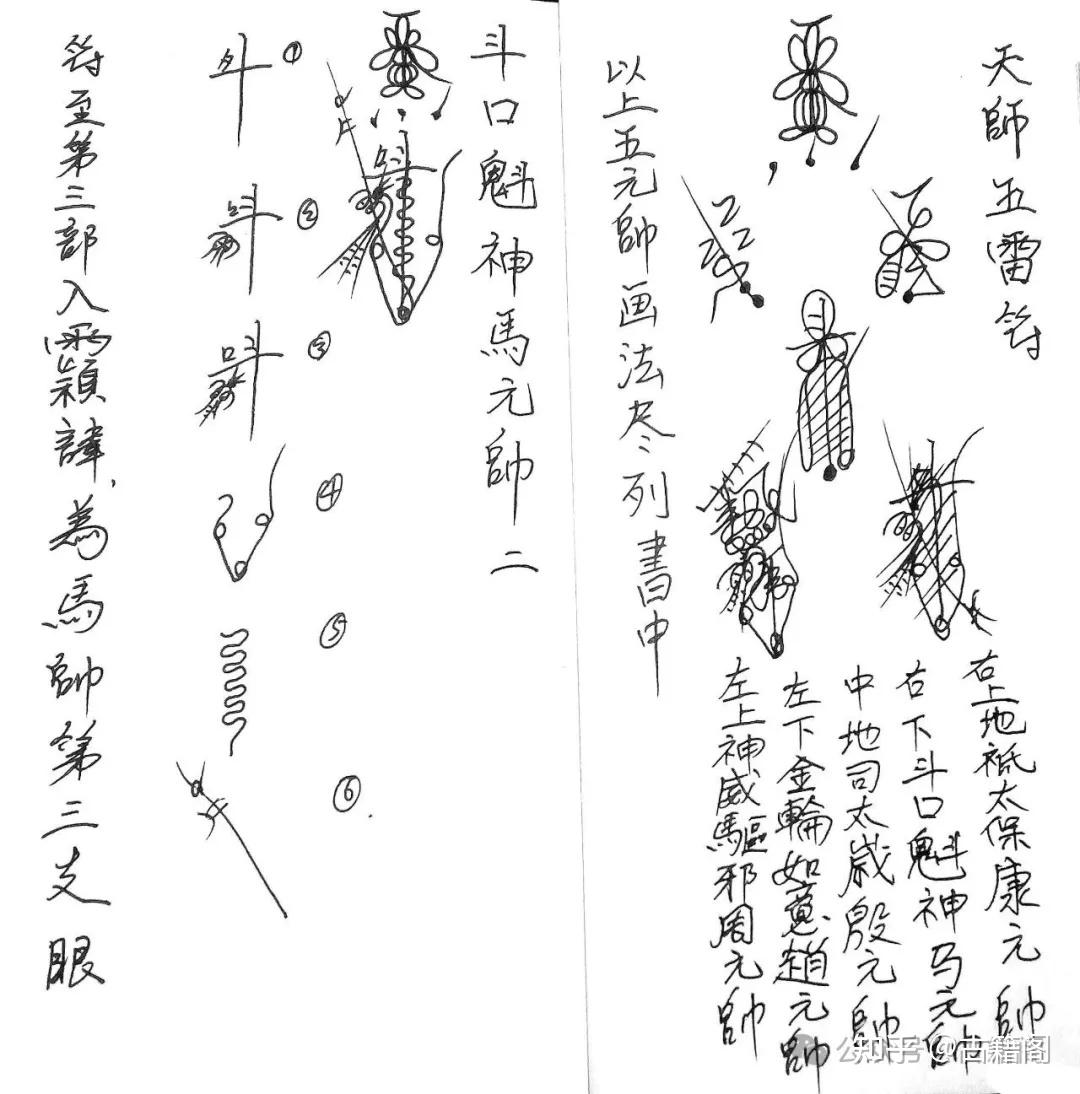 天師五雷符
右上地祇太保康元帥
右下斗口魁神马元帥
中地司太歲殷元帥
左下金輪如意趙元帥
左上神威驅邪周元帥
以上五元帥画法尽列書中
斗口魁神馬元帥二
①
②
③
④
⑤
⑥
符至第三部入霛諱，為馬帥第三支眼
知乎 @古籍阁